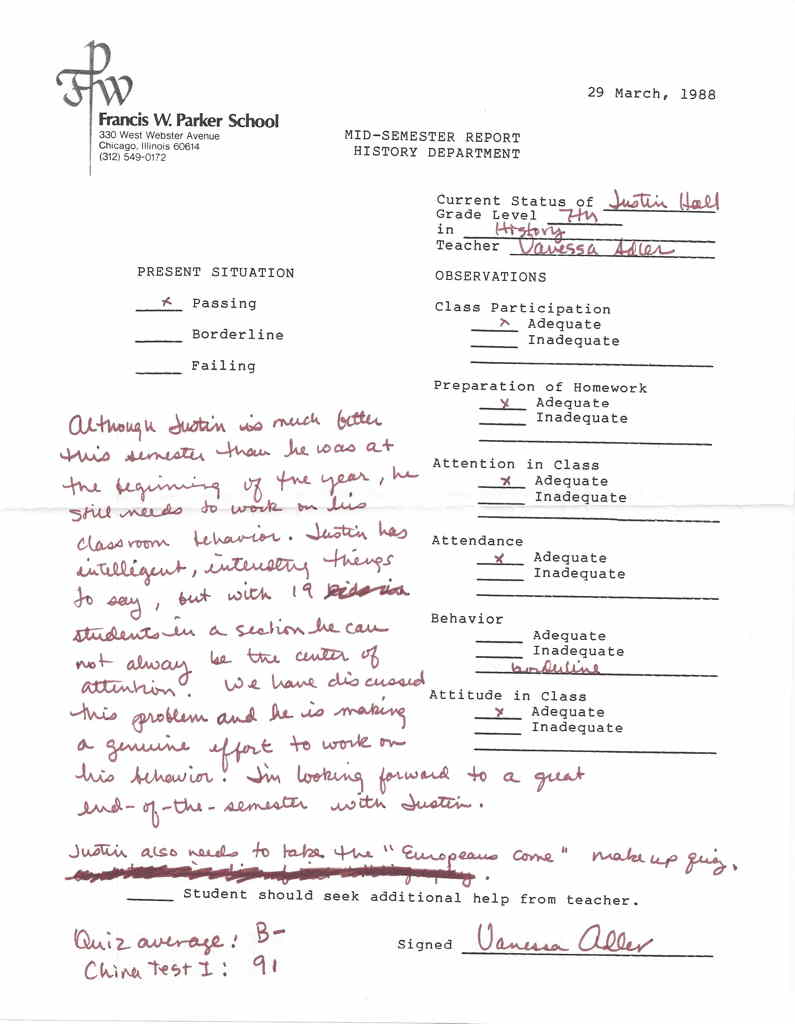 FWP
Francis W. Parker School
330 West Webster Avenue
Chicago, Illinois 60614
(312) 549-0172
29 March, 1988
MID-SEMESTER REPORT
HISTORY DEPARTMENT
Current Status of Justin Hall
Grade Level 7th
in History
Teacher Vanessa Adler
PRESENT SITUATION
x Passing
Borderline
Failing
OBSERVATIONS
Class Participation
x Adequate
Inadequate
Preparation of Homework
x Adequate
Inadequate
Attention in Class
x Adequate
Inadequate
Attendance
x Adequate
Inadequate
Behavior
Adequate
Inadequate
borderline
Attitude in Class
x Adequate
Inadequate
Although Justin is much better
this semester than he was at
the beginning of the year, he
still needs to work on his
classroom behavior. Justin has
intelligent, interesting things
to say, but with 19
students in a section he can
not alway be the center of
attention. We have discussed
this problem and he is making
a genuine effort to work on
his behavior! I'm looking forward to a great
end-of-the-semester with Justin.
Justin also needs to take the "Europeans Come" make up quiz.
Student should seek additional help from teacher.
Quiz average: B-
China Test I: 91
Signed Vanessa Adler